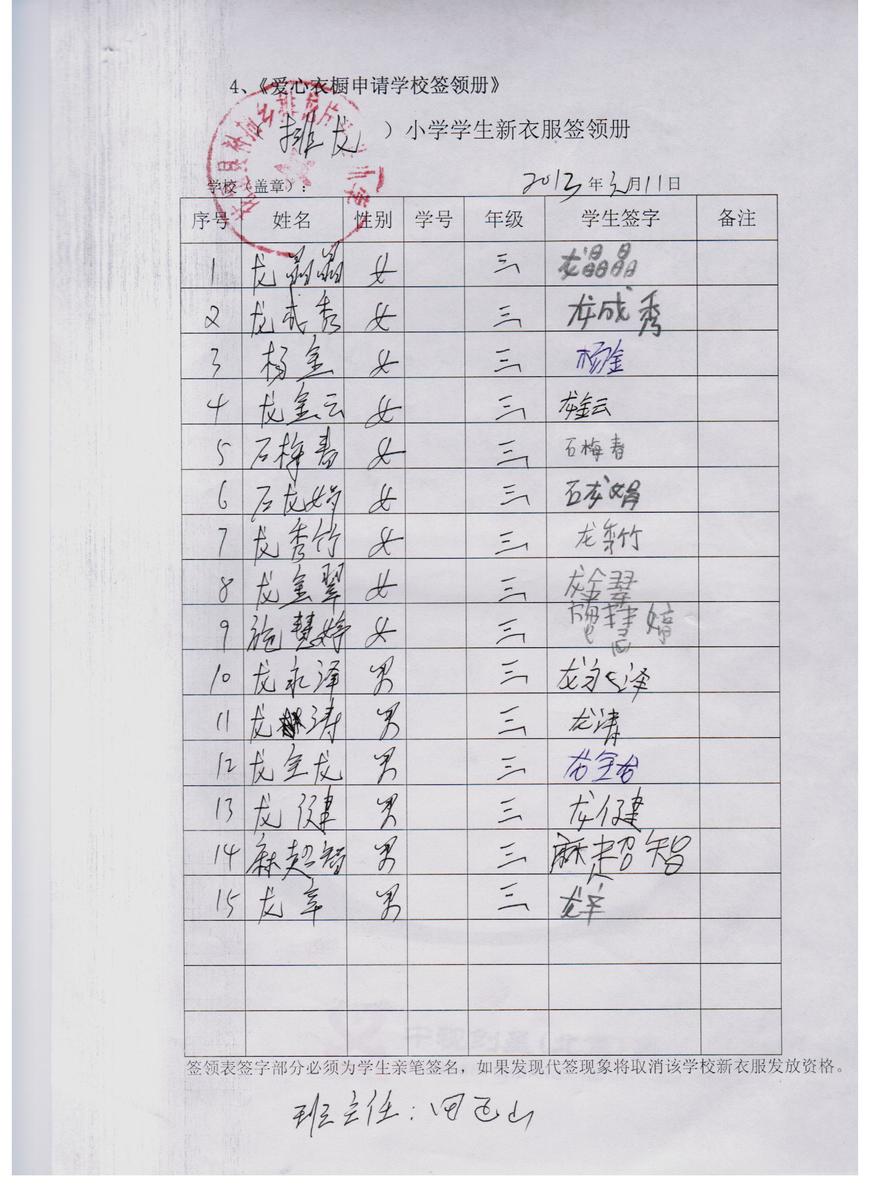 4、《爱心衣橱申请学校签领册》
（ 排龙 ）小学学生新衣服签领册
学校（盖章）： 2013年3月11日
序号 姓名 性别 学号 年级 学生签字 备注
1 龙晶晶 女 三 龙晶晶
2 龙成秀 女 三 龙成秀
3 杨金 女 三 杨金
4 龙金云 女 三 龙金云
5 石梅春 女 三 石梅春
6 石龙娟 女 三 石龙娟
7 龙秀竹 女 三 龙秀竹
8 龙金翠 女 三 龙金翠
9 施慧婷 女 三 施慧婷
10 龙永泽 男 三 龙永泽
11 龙涛 男 三 龙涛
12 龙金龙 男 三 龙金龙
13 龙健 男 三 龙健
14 麻超智 男 三 麻超智
15 龙军 男 三 龙军
签领表签字部分必须为学生亲笔签名，如果发现代签现象将取消该学校新衣服发放资格。
班主任：田玉山